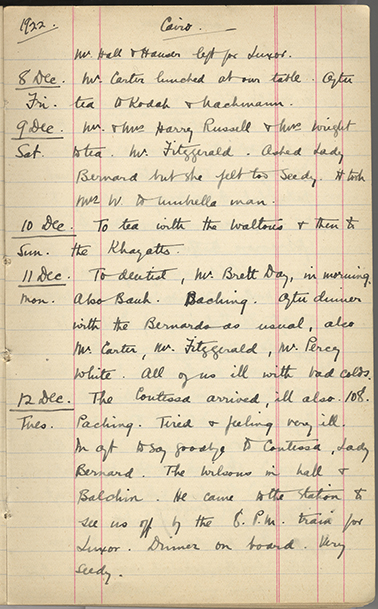 1922. Cairo.
Mr. Hall & Hauser left for Luxor.
8 Dec. Mr. Carter lunched at our table. After
Fri. tea to Kodak & Nachmann.
9 Dec. Mr. & Mrs Harry Russell & Mrs Wright
Sat. to tea. Mr. Fitzgerald. Asked Lady
Bernard but she felt too seedy. H took
Mrs W. to umbrella man.
10 Dec. To tea with the Waltons & then to
Sun. the Khayatts.
11 Dec. To dentist, Mr. Brett Day, in morning.
Mon. Also Bank. Packing. After dinner
with the Bernards as usual, also
Mr. Carter, Mr. Fitzgerald, Mr. Percy
White. All of us ill with bad colds.
12 Dec. The Contessa arrived, ill also. 108.
Tues. Packing. Tired & feeling very ill.
In aft to say goodbye to Contessa, Lady
Bernard. The Wilsons in hall &
Baldwin. He came to the station to
see us off by the 6 P.M. train for
Luxor. Dinner on board. Very
seedy.